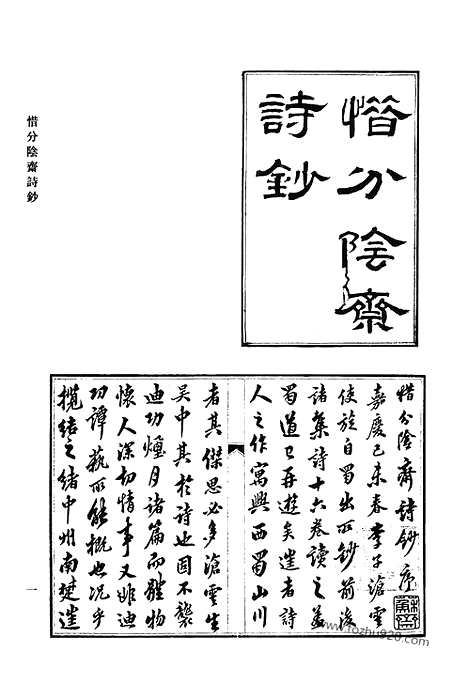 惜分陰齋
詩鈔
惜分陰齋詩鈔
惜分陰齋詩鈔序
嘉慶己未春李子滄雲
使旋自蜀出所鈔前後
諸集詩十六卷讀之蓋
蜀道已再遊矣者詩
人之作寓興西蜀山川
者其傑思必多滄雲生
吳中其於詩也固不襲
迪功煙月諸篇而體物
懷人深切情事又非迪
功譚藝所能概也況乎
攬結之緒中州南楚
一